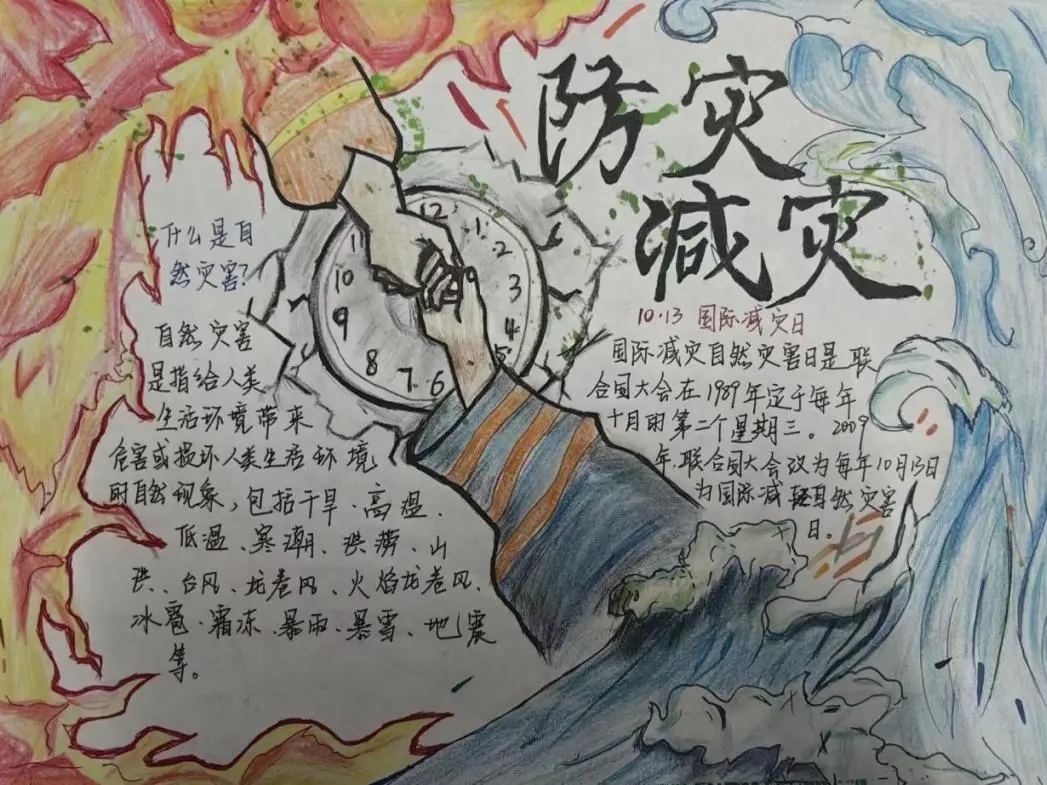 防灾
减灾
10.13 国际减灾日
国际减灾自然灾害日是联
合国大会在1989年定于每年
十月的第二个星期三。2009
年.联合国大会改为每年10月13日
为国际减轻自然灾害
日。
什么是自
然灾害?
自然灾害
是指给人类
生活环境带来
危害或损坏人类生活环境
的自然现象,包括干旱、高温、
低温、寒潮、洪涝、山
洪、台风、龙卷风、火焰龙卷风、
冰雹、霜冻、暴雨、暴雪、地震
等。
12
1
2
3
4
5
6
7
8
9
10
11